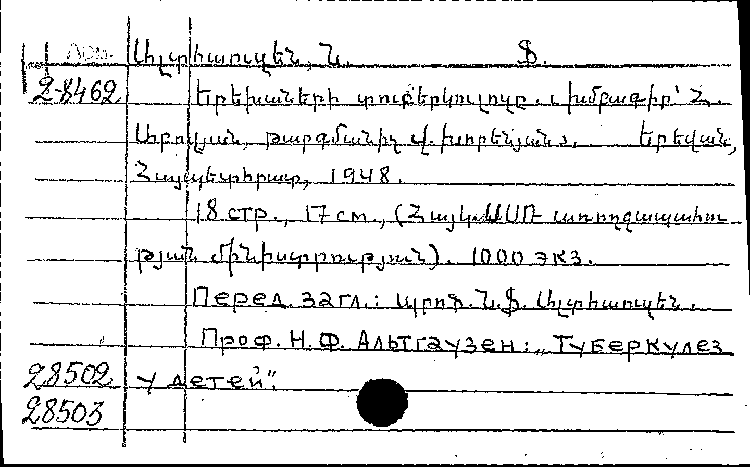 Ալտհաուզեն, Ն. Ֆ.
2-8462 Երեխաների տուբերկուլյոզը. խմբագիր՝ Հ.
Աբովյան, թարգմանիչ Վ. Խորենյան. Երեվան,
Հայպետհրատ, 1948.
18 стр., 17 см., (Հայկ. ՍՍՌ առողջապահու
թյան մինիստրություն). 1000 экз.
Перед загл.: պրոֆ. Ն. Ֆ. Ալտհաուզեն.
Проф. Н. Ф. Альтгаузен: „Туберкулез
28502 у детей".
28503